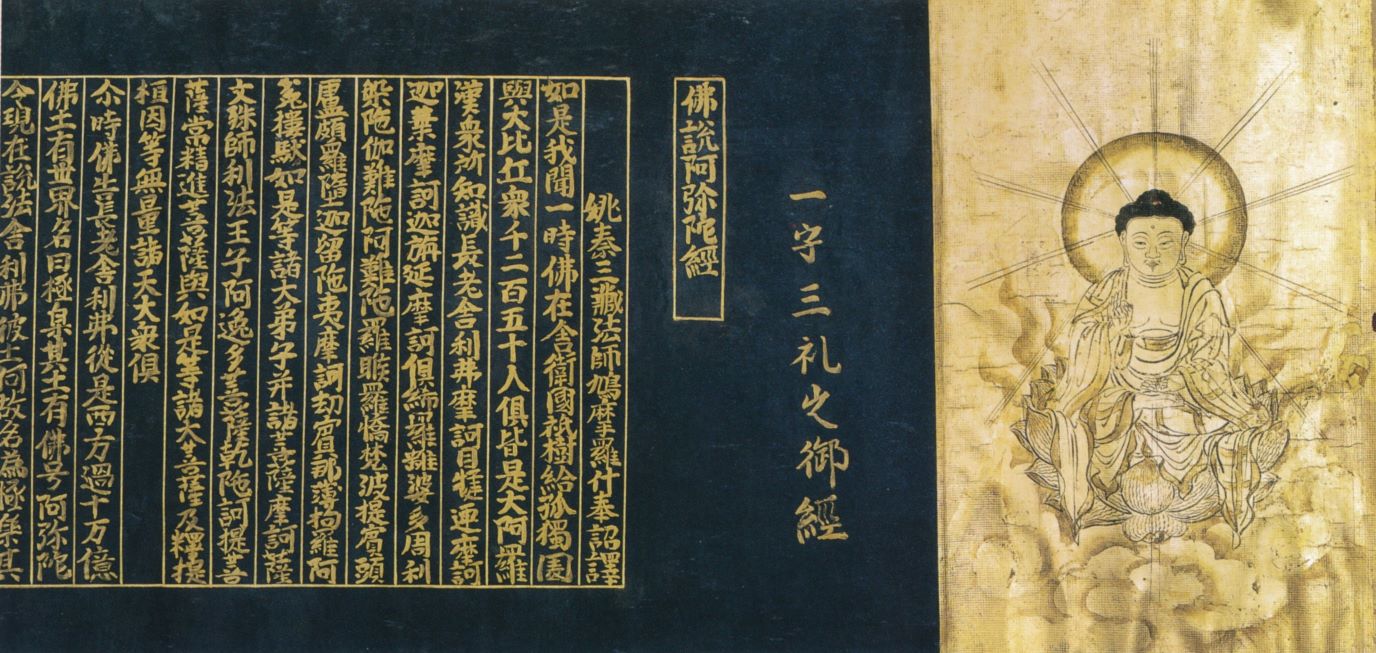 一字三礼之御經
佛說阿弥陀經
姚秦三藏法師鳩摩羅什奉詔譯
如是我聞一時佛在舍衛國祇樹給孤獨園
與大比丘衆千二百五十人俱皆是大阿羅
漢衆所知識長老舍利弗摩訶目犍連摩訶
迦葉摩訶迦旃延摩訶俱絺羅離婆多周利
槃陀伽難陀阿難陀羅睺羅憍梵波提賓頭
盧頗羅隨迦留陀夷摩訶劫賓那薄拘羅阿
㝹樓馱如是等諸大弟子并諸菩薩摩訶薩
文殊師利法王子阿逸多菩薩乾陀訶提菩
薩常精進菩薩與如是等諸大菩薩及釋提
桓因等無量諸天大衆俱
尒時佛告長老舍利弗從是西方過十万億
佛土有世界名曰極樂其土有佛号阿弥陀
今現在說法舍利弗彼土何故名為極樂其